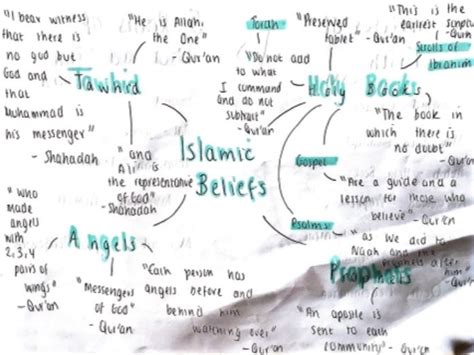 "I bear witness
that there is
no god but
God and
that
Muhammad is
his messenger"
- Shahadah
"He is Allah,
the One"
- Qur'an
Tawhid
"and
Ali is
the representative
of God"
- Shahadah
Islamic
Beliefs
Torah
"Do not add
to what
I command
and do not
subtract"
- Qur'an
"Preserved
tablet"
- Qur'an
"This is the
earliest scripture"
- Qur'an
Scrolls of
Ibrahim
Holy Books
"The book in
which there is
no doubt"
- Qur'an
Gospel
"Are a guide and a
lesson for those who
believe" - Qur'an
Psalms
"as we did to
Nuah and the
prophets after
him"
- Qur'an
Prophets
"An apostle is
sent to each
community"
- Qur'an
"who
made
angels
with
2,3,4
pairs of
wings"
- Qur'an
Angels
"Messengers
of God"
- Qur'an
"Each person has
angels before and
behind him
watching over"
- Qur'an